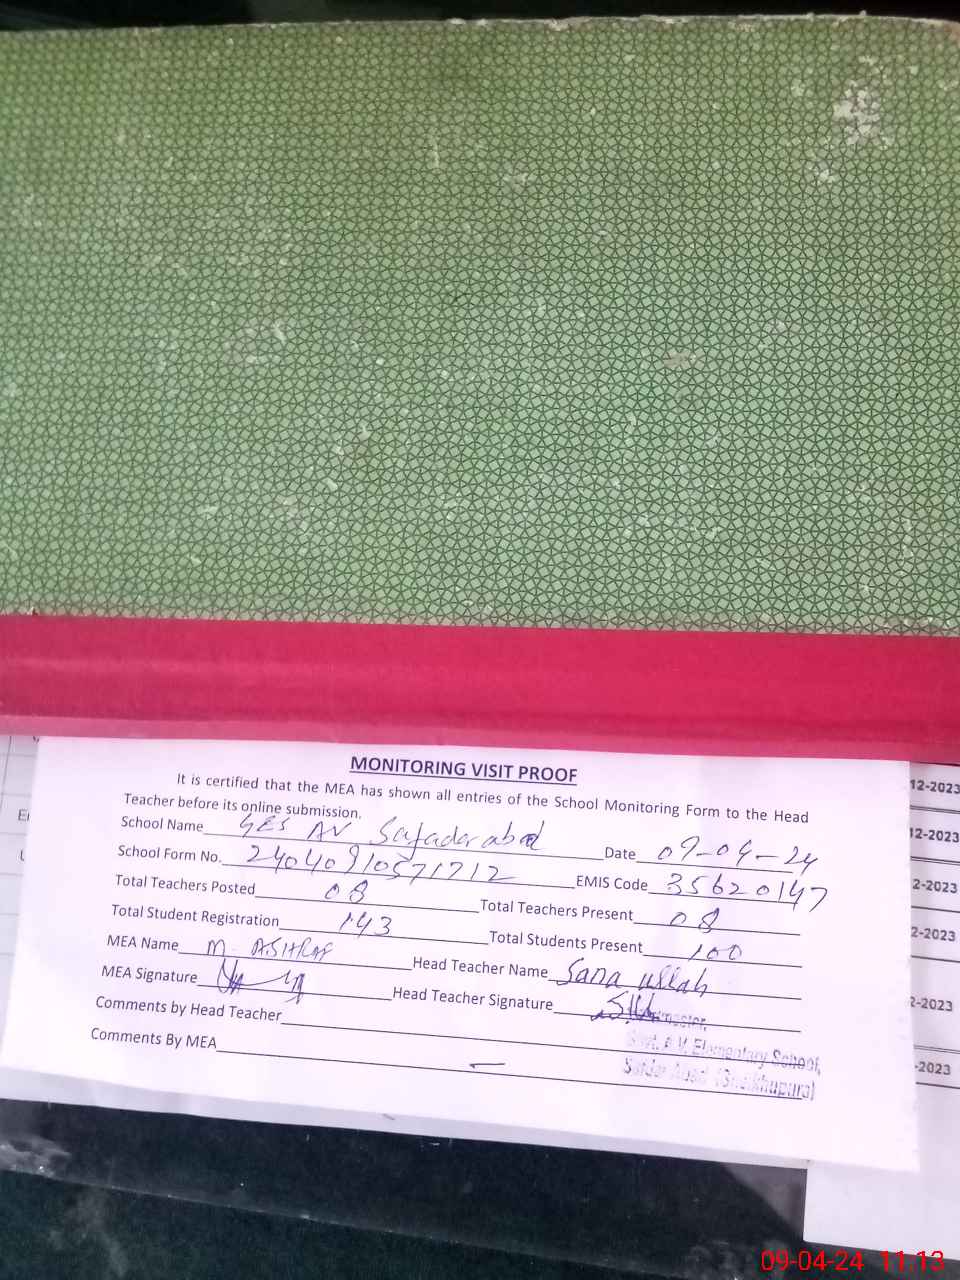 MONITORING VISIT PROOF
It is certified that the MEA has shown all entries of the School Monitoring Form to the Head
Teacher before its online submission.
School Name GES AV Safaderabad Date 09-04-24
School Form No. 24040910571712 EMIS Code 35620147
Total Teachers Posted 08 Total Teachers Present 08
Total Student Registration 143 Total Students Present 100
MEA Name M. ASHRAF Head Teacher Name Sana ullah
MEA Signature Head Teacher Signature
Comments by Head Teacher
Comments By MEA
Govt. A.V. Elementary School,
(Sheikhupura)
12-2023
12-2023
2-2023
2-2023
2-2023
-2023
09-04-24 11:13